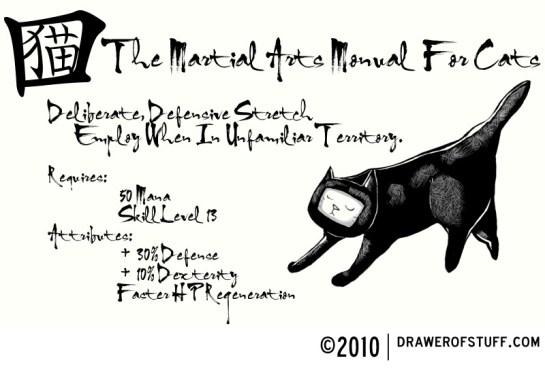 猫 The Martial Arts Manual For Cats
Deliberate, Defensive Stretch
Employ When In Unfamiliar Territory.
Requires:
50 Mana
Skill Level 13
Attributes:
+ 30% Defense
+ 10% Dexterity
Faster HP Regeneration
©2010 | DRAWEROFSTUFF.COM